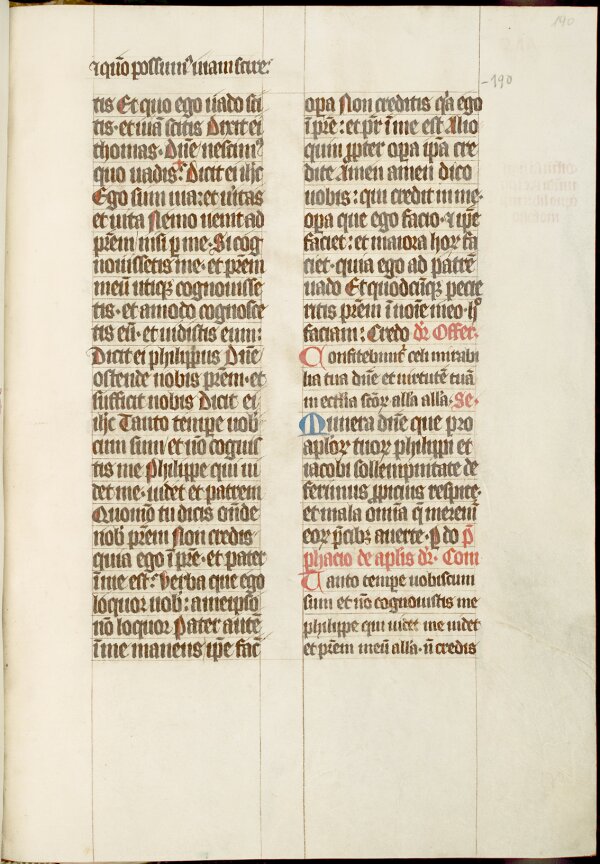 190
-190
⁊ quo possum᷒ uiam scire:
tis Et quo ego uado sci
tis · et uiā scitis Dixit ei
thomas · Dn̄e nescim᷒
quo uadis · Dicit ei ihc̄
Ego sum uia : et ūitas
et uita Nemo uenit ad
prēm nisi ꝑ me · Si cog
nouissetis me · et prēm
meū utiqꝫ cognouisse
tis · et amodo cognosce
tis eū · et uidistis eum :
Dicit ei philippus Dn̄e
ostende nobis prēm · et
sufficit nobis Dicit ei
ihc̄ Tanto tempe uob̄
cum sum et nō cognis
tis me Philippe qui ui
det me · uidet et patrem
Quomō tu dicis on̄de
nob̄ prēm Non credis
quia ego ī prē · et pater
ī me est : Verba que ego
loquor uob̄ : a meip̄o
nō loquor Pater autē
ī me manens ip̄e fac̄
opa Non creditis qꝛa ego
ī prē : et pr̄ ī me est Alio
quim ꝓpter opa ip̄a cre
dite Amen amen dico
uobis : qui credit in me ·
opa que ego facio · ⁊ ip̄e
faciet : et maiora hoꝝ fa
ciet · quia ego ad patrē
uado Et quodcūqꝫ pecie
ritis prēm ī noīe meo · h°
faciam : Credo dr̄ Offer̄ ·
Confitebunt᷑ celi mirabi
lia tua dn̄e et uirtutē tuā
in ecclīa scōꝝ alla alla · Se ·
Munera dn̄e que pro
aploꝝ tuoꝝ philippi et
iacobi sollempnitate de
ferimus ꝓpicius respice ·
et mala omīa q̄ merem᷑
eoꝝ p̄cibꝫ auerte · P do p̄
phacio de aplis dr̄ · Com
Tanto tempe uobiscum
sum et nō cognouistis me
philippe qui uidet me uidet
et prēm meū alla · n̄ credis